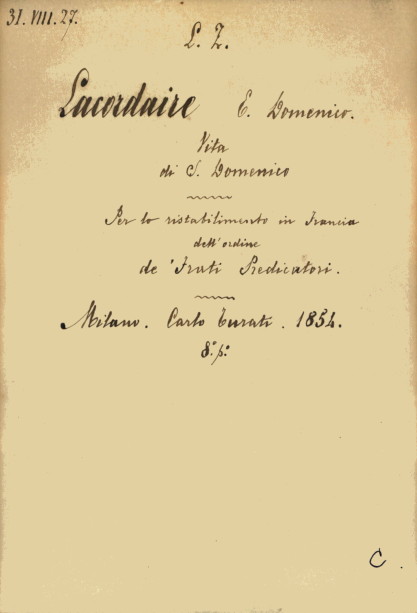 31. VIII. 27.
L. Z.
Lacordaire E. Domenico.
Vita
di S. Domenico
Per lo ristabilimento in Francia
dell'ordine
de' Frati Predicatori.
Milano. Carlo Turati. 1854.
8.° p.°
C.